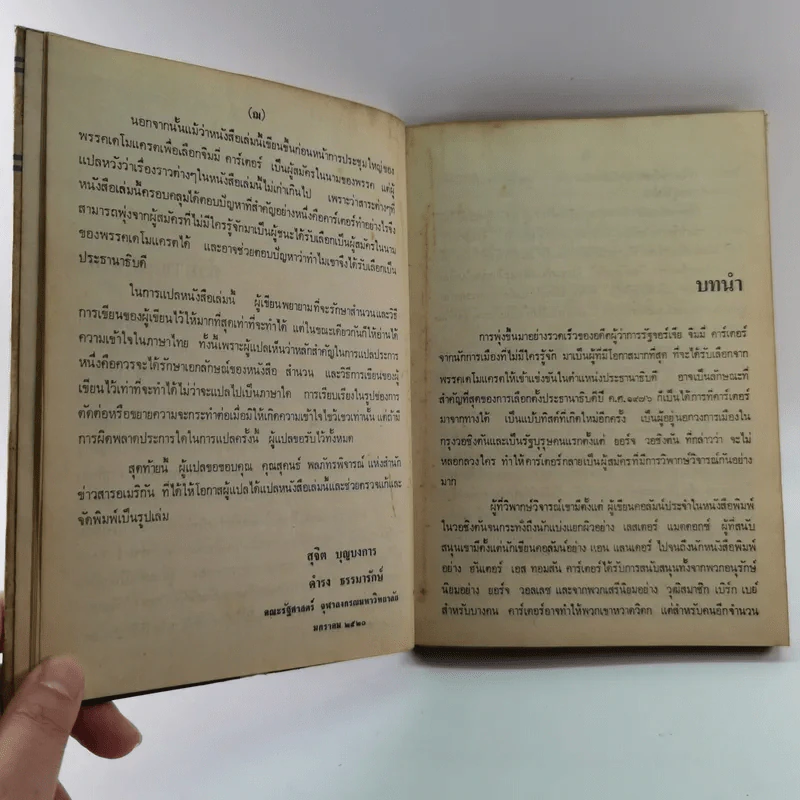 (ณ)
นอกจากนั้นแม้ว่าหนังสือเล่มนี้เขียนขึ้นก่อนหน้าการประชุมใหญ่ของ
พรรคเดโมแครตเพื่อเลือกจิมมี่ คาร์เตอร์ เป็นผู้สมัครในนามของพรรค แต่ผู้
แปลหวังว่าเรื่องราวต่างๆในหนังสือเล่มนี้ไม่เก่าเกินไป เพราะว่าสาระต่างๆที่
หนังสือเล่มนี้ครอบคลุมได้ตอบปัญหาที่สำคัญอย่างหนึ่งคือคาร์เตอร์ทำอย่างไรจึง
สามารถพุ่งจากผู้สมัครที่ไม่มีใครรู้จักมาเป็นผู้ชนะได้รับเลือกเป็นผู้สมัครในนาม
ของพรรคเดโมแครตได้ และอาจช่วยตอบปัญหาว่าทำไมเขาจึงได้รับเลือกเป็น
ประธานาธิบดี
ในการแปลหนังสือเล่มนี้ ผู้เขียนพยายามที่จะรักษาสำนวนและวิธี
การเขียนของผู้เขียนไว้ให้มากที่สุดเท่าที่จะทำได้ แต่ในขณะเดียวกันก็ให้อ่านได้
ความเข้าใจในภาษาไทย ทั้งนี้เพราะผู้แปลเห็นว่าหลักสำคัญในการแปลประการ
หนึ่งคือควรจะได้รักษาเอกลักษณ์ของหนังสือ สำนวน และวิธีการเขียนของผู้
เขียนไว้เท่าที่จะทำได้ไม่ว่าจะแปลไปเป็นภาษาใด การเรียบเรียงในรูปของการ
ตัดต่อหรือขยายความจะกระทำต่อเมื่อมให้เกิดความเข้าใจไขว้เขวเท่านั้น แต่ถ้ามี
การผิดพลาดประการใดในการแปลครั้งนี้ ผู้แปลขอรับไว้ทั้งหมด
สุดท้ายนี้ ผู้แปลขอขอบคุณ คุณสุคนธ์ พลภัทรพิจารณ์ แห่งสำนัก
ข่าวสารอเมริกัน ที่ได้ให้โอกาสผู้แปลได้แปลหนังสือเล่มนี้และช่วยตรวจแก้และ
จัดพิมพ์เป็นรูปเล่ม
สุจิต บุญบงการ
ดำรง ธรรมารักษ์
คณะรัฐศาสตร์ จุฬาลงกรณมหาวิทยาลัย
มกราคม ๒๕๒๐
บทนำ
การพุ่งขึ้นมาอย่างรวดเร็วของอดีตผู้ว่าการรัฐจอร์เจีย จิมมี่ คาร์เตอร์
จากนักการเมืองที่ไม่มีใครรู้จัก มาเป็นผู้ที่มีโอกาสมากที่สุด ที่จะได้รับเลือกจาก
พรรคเดโมแครตให้เข้าแข่งขันในตำแหน่งประธานาธิบดี อาจเป็นลักษณะที่
สำคัญที่สุดของการเลือกตั้งประธานาธิบดีปี ค.ศ.๑๙๗๖ ก็เป็นได้การที่คาร์เตอร์
มาจากทางใต้ เป็นแบ๊บทิสต์ที่เกิดใหม่อีกครั้ง เป็นผู้อยู่นอกวงการเมืองใน
กรุงวอชิงตันและเป็นรัฐบุรุษคนแรกตั้งแต่ ยอร์จ วอชิงตัน ที่กล่าวว่า จะไม่
หลอกลวงใคร ทำให้คาร์เตอร์กลายเป็นผู้สมัครที่มีการวิพากษ์วิจารณ์กันอย่าง
มาก
ผู้ที่วิพากษ์วิจารณ์เขามีตั้งแต่ ผู้เขียนคอลัมน์ประจำในหนังสือพิมพ์
ในวอชิงตันจนกระทั่งถึงนักแบ่งแยกผิวอย่าง เลสเตอร์ แมดดอกซ์ ผู้ที่สนับ
สนุนเขามีตั้งแต่นักเขียนคอลัมน์อย่าง แอน แลนเดอร์ ไปจนถึงนักหนังสือพิมพ์
อย่าง ฮันเตอร์ เอส ทอมสัน คาร์เตอร์ได้รับการสนับสนุนทั้งจากพวกอนุรักษ์
นิยมอย่าง ยอร์จ วอลเลซ และจากพวกเสรีนิยมอย่าง วุฒิสมาชิก เบิร์ก เบย์
สำหรับบางคน คาร์เตอร์อาจทำให้พวกเขาหวาดวิตก แต่สำหรับคนอีกจำนวน